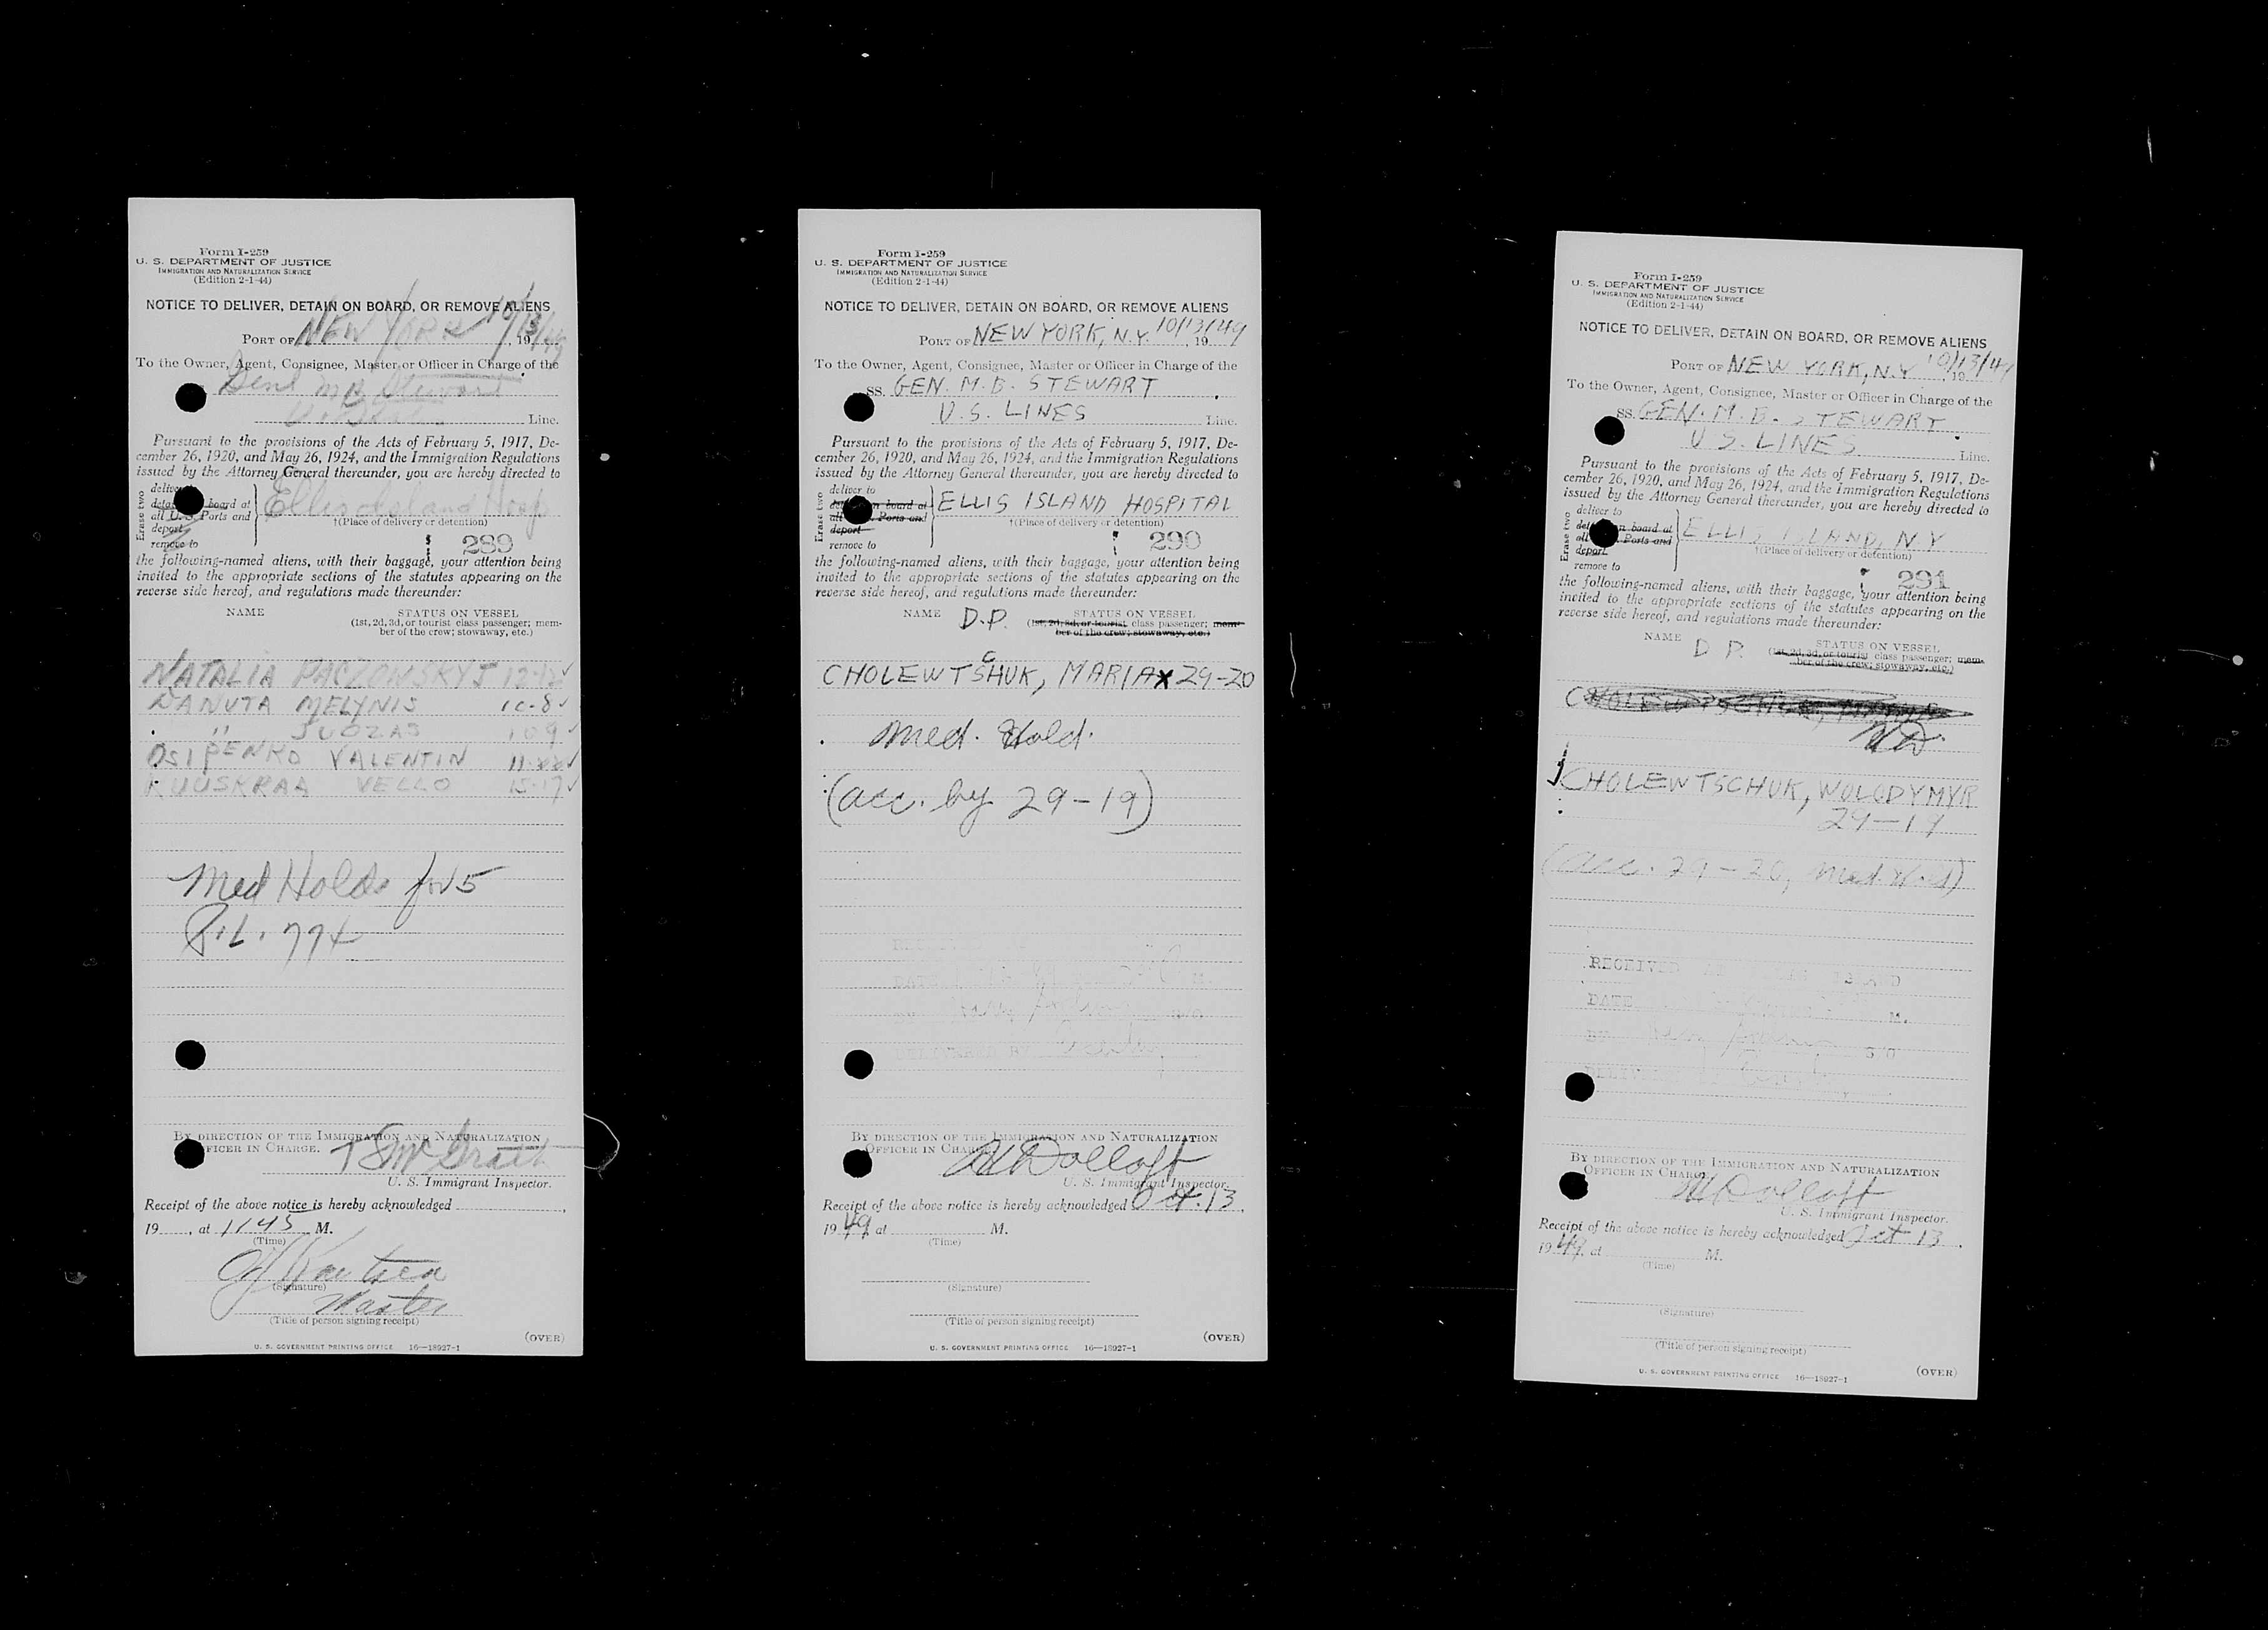 Form I-259
U. S. DEPARTMENT OF JUSTICE
IMMIGRATION AND NATURALIZATION SERVICE
(Edition 2-1-44)
NOTICE TO DELIVER, DETAIN ON BOARD, OR REMOVE ALIENS
PORT OF NEW YORK 10/13/49, 19
To the Owner, Agent, Consignee, Master or Officer in Charge of the
Genl M B Stewart
Line.
Pursuant to the provisions of the Acts of February 5, 1917, De-
cember 26, 1920, and May 26, 1924, and the Immigration Regulations
issued by the Attorney General thereunder, you are hereby directed to
Erase two
deliver
board at
all U. S. Ports and
deport
remove to
Ellis Island Hosp
†(Place of delivery or detention)
289
the following-named aliens, with their baggage, your attention being
invited to the appropriate sections of the statutes appearing on the
reverse side hereof, and regulations made thereunder:
NAME STATUS ON VESSEL
(1st, 2d, 3d, or tourist class passenger; mem-
ber of the crew; stowaway, etc.)
NATALIA PACZOWSKYJ
DANUTA MELYNIS 10-8 ✓
" JUOZAS 10 9 ✓
OSIPENKO VALENTIN ✓
KUUSKRAA VELLO 15-17 ✓
Med Holds for 5
P.L. 774
BY DIRECTION OF THE IMMIGRATION AND NATURALIZATION
FICER IN CHARGE.
U. S. Immigrant Inspector.
Receipt of the above notice is hereby acknowledged
19 , at 1145 M.
(Time)
(Signature)
Master
(Title of person signing receipt)
(OVER)
U. S. GOVERNMENT PRINTING OFFICE 16—18927-1
Form I-259
U. S. DEPARTMENT OF JUSTICE
IMMIGRATION AND NATURALIZATION SERVICE
(Edition 2-1-44)
NOTICE TO DELIVER, DETAIN ON BOARD, OR REMOVE ALIENS
PORT OF NEW YORK, N.Y. 10/13/49, 19
To the Owner, Agent, Consignee, Master or Officer in Charge of the
SS. GEN. M. B. STEWART
U.S. LINES Line.
Pursuant to the provisions of the Acts of February 5, 1917, De-
cember 26, 1920, and May 26, 1924, and the Immigration Regulations
issued by the Attorney General thereunder, you are hereby directed to
Erase two
deliver to
n board at
all Ports and
deport
remove to
ELLIS ISLAND HOSPITAL
†(Place of delivery or detention)
290
the following-named aliens, with their baggage, your attention being
invited to the appropriate sections of the statutes appearing on the
reverse side hereof, and regulations made thereunder:
NAME D.P. STATUS ON VESSEL
(1st, 2d, 3d, or tourist class passenger; mem-
ber of the crew; stowaway, etc.)
CHOLEWTSCHUK, MARIA X 29-20
Med. Hold.
(acc. by 29-19)
BY DIRECTION OF THE IMMIGRATION AND NATURALIZATION
OFFICER IN CHARGE.
U. S. Immigrant Inspector.
Receipt of the above notice is hereby acknowledged Oct. 13,
19 49, at M.
(Time)
(Signature)
(Title of person signing receipt)
(OVER)
U. S. GOVERNMENT PRINTING OFFICE 16—18927-1
Form I-259
U. S. DEPARTMENT OF JUSTICE
IMMIGRATION AND NATURALIZATION SERVICE
(Edition 2-1-44)
NOTICE TO DELIVER, DETAIN ON BOARD, OR REMOVE ALIENS
PORT OF NEW YORK, N.Y 10/13/49, 19
To the Owner, Agent, Consignee, Master or Officer in Charge of the
SS. GEN. M. B. STEWART
U S. LINES Line.
Pursuant to the provisions of the Acts of February 5, 1917, De-
cember 26, 1920, and May 26, 1924, and the Immigration Regulations
issued by the Attorney General thereunder, you are hereby directed to
Erase two
deliver to
n board at
all Ports and
deport
remove to
ELLIS ISLAND, N.Y
†(Place of delivery or detention)
291
the following-named aliens, with their baggage, your attention being
invited to the appropriate sections of the statutes appearing on the
reverse side hereof, and regulations made thereunder:
NAME D P. STATUS ON VESSEL
(1st, 2d, 3d, or tourist class passenger; mem-
ber of the crew; stowaway, etc.)
CHOLEWTSCHUK, WOLODYMYR
29-19
(acc. 29-20, med. Hold)
RECEIVED AT ELLIS ISLAND
DATE M.
BY
BY DIRECTION OF THE IMMIGRATION AND NATURALIZATION
OFFICER IN CHARGE.
U. S. Immigrant Inspector.
Receipt of the above notice is hereby acknowledged Oct 13,
19 49, at M.
(Time)
(Signature)
(Title of person signing receipt)
(OVER)
U. S. GOVERNMENT PRINTING OFFICE 16—18927-1